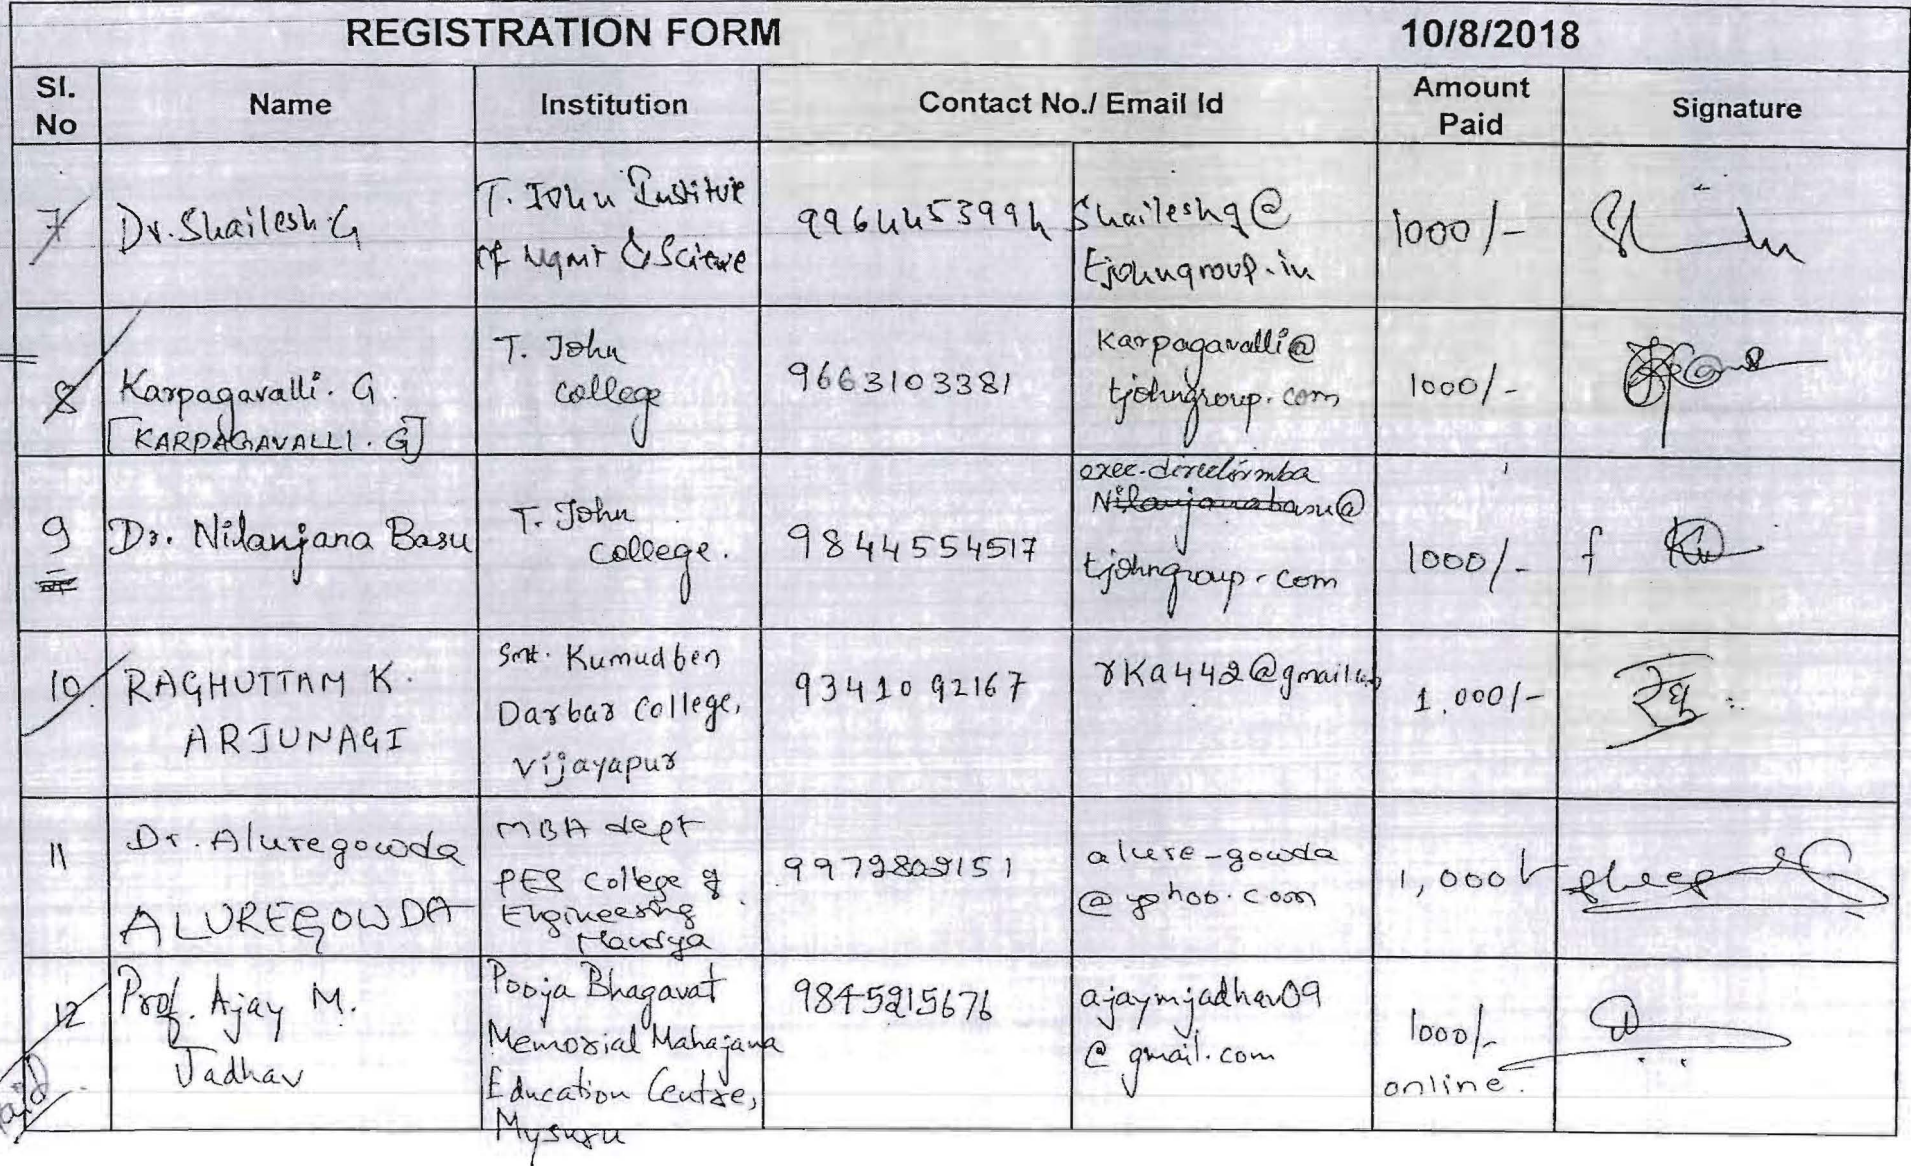 REGISTRATION FORM 10/8/2018
Sl. No Name Institution Contact No./ Email Id Amount Paid Signature
7 Dr. Shailesh. G
T. John Institute
of Mgmt & Science
9964453994
Shaileshg@
tjohngroup.in
1000/-
8 Karpagavalli. G.
[KARPAGAVALLI. G]
T. John
college
9663103381
Karpagavalli@
tjohngroup.com
1000/-
9 Dr. Nilanjana Basu
T. John
college.
9844554517
exec.directormba
Nilanjanabasu@
tjohngroup.com
1000/-
10 RAGHUTTAM K.
ARJUNAGI
Smt. Kumudben
Darbar College,
Vijayapur
9341092167
rka442@gmail.com
1,000/-
11 Dr. Aluregowda
ALUREGOWDA
MBA dept
PES College of
Engineering
Mandya
alure-gowda
@yahoo.com
1,000/-
12 Prof. Ajay M.
Jadhav
Pooja Bhagavat
Memorial Mahajana
Education Centre,
Mysuru
9845215676
ajaymjadhav09
@gmail.com
1000/-
online.